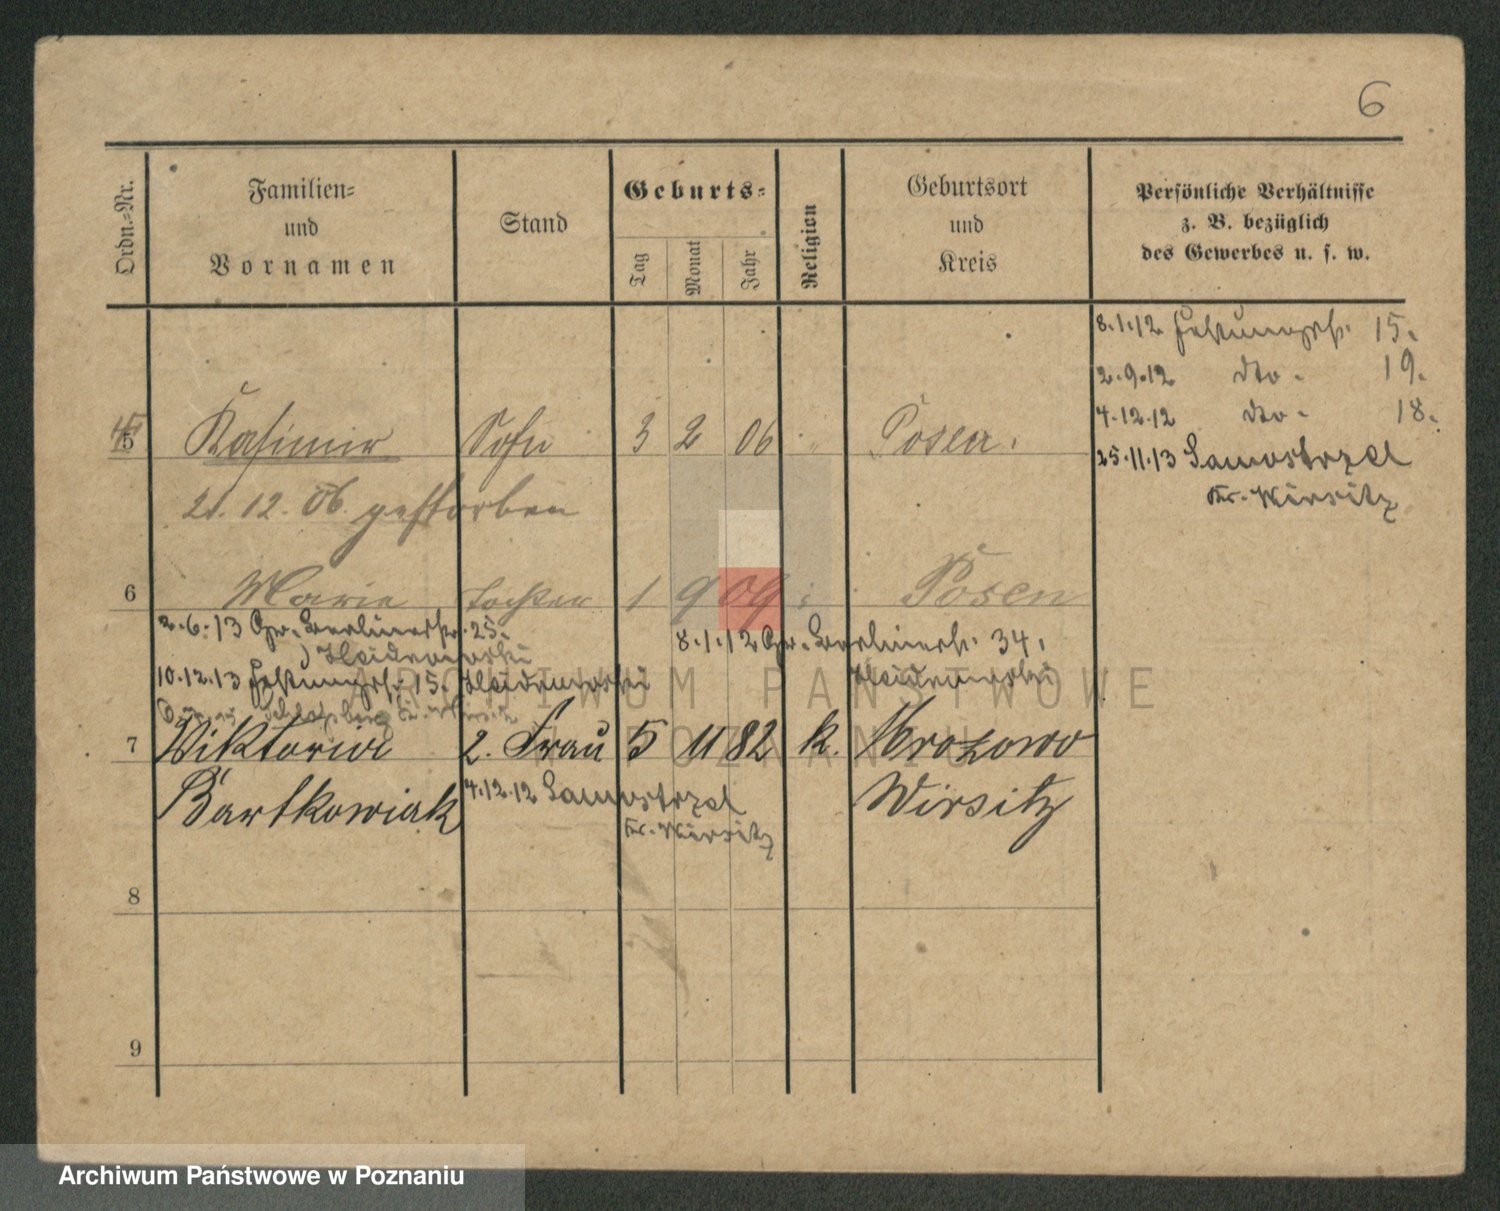 6
Ordn.-Nr.
Familien-
und
Vornamen
Stand
Geburts-
Tag
Monat
Jahr
Religion
Geburtsort
und
Kreis
Persönliche Verhältnisse
z. B. bezüglich
des Gewerbes u. s. w.
8.1.12 Festungsstr. 15.
2.9.12 dto - 19.
4.12.12 dto - 18.
25.11.13 Samostrzel
Kr. Wirsitz
5 Kasimir Sohn 3 2 06 Posen.
21.12.06. gestorben
6 Marie Tochter 1 9 09 Posen
2.6.13 Gr. Berlinerstr. 25.
8.1.12 Gr. Berlinerstr. 34.
10.12.13 Festungsstr. 15.
7 Wiktoria 2. Frau 5 11 82 k. Mrozowo
Bartkowiak Wirsitz
4.12.12 Samostrzel
Kr. Wirsitz
8
9
ARCHIWUM PAŃSTWOWE
W POZNANIU
Archiwum Państwowe w Poznaniu